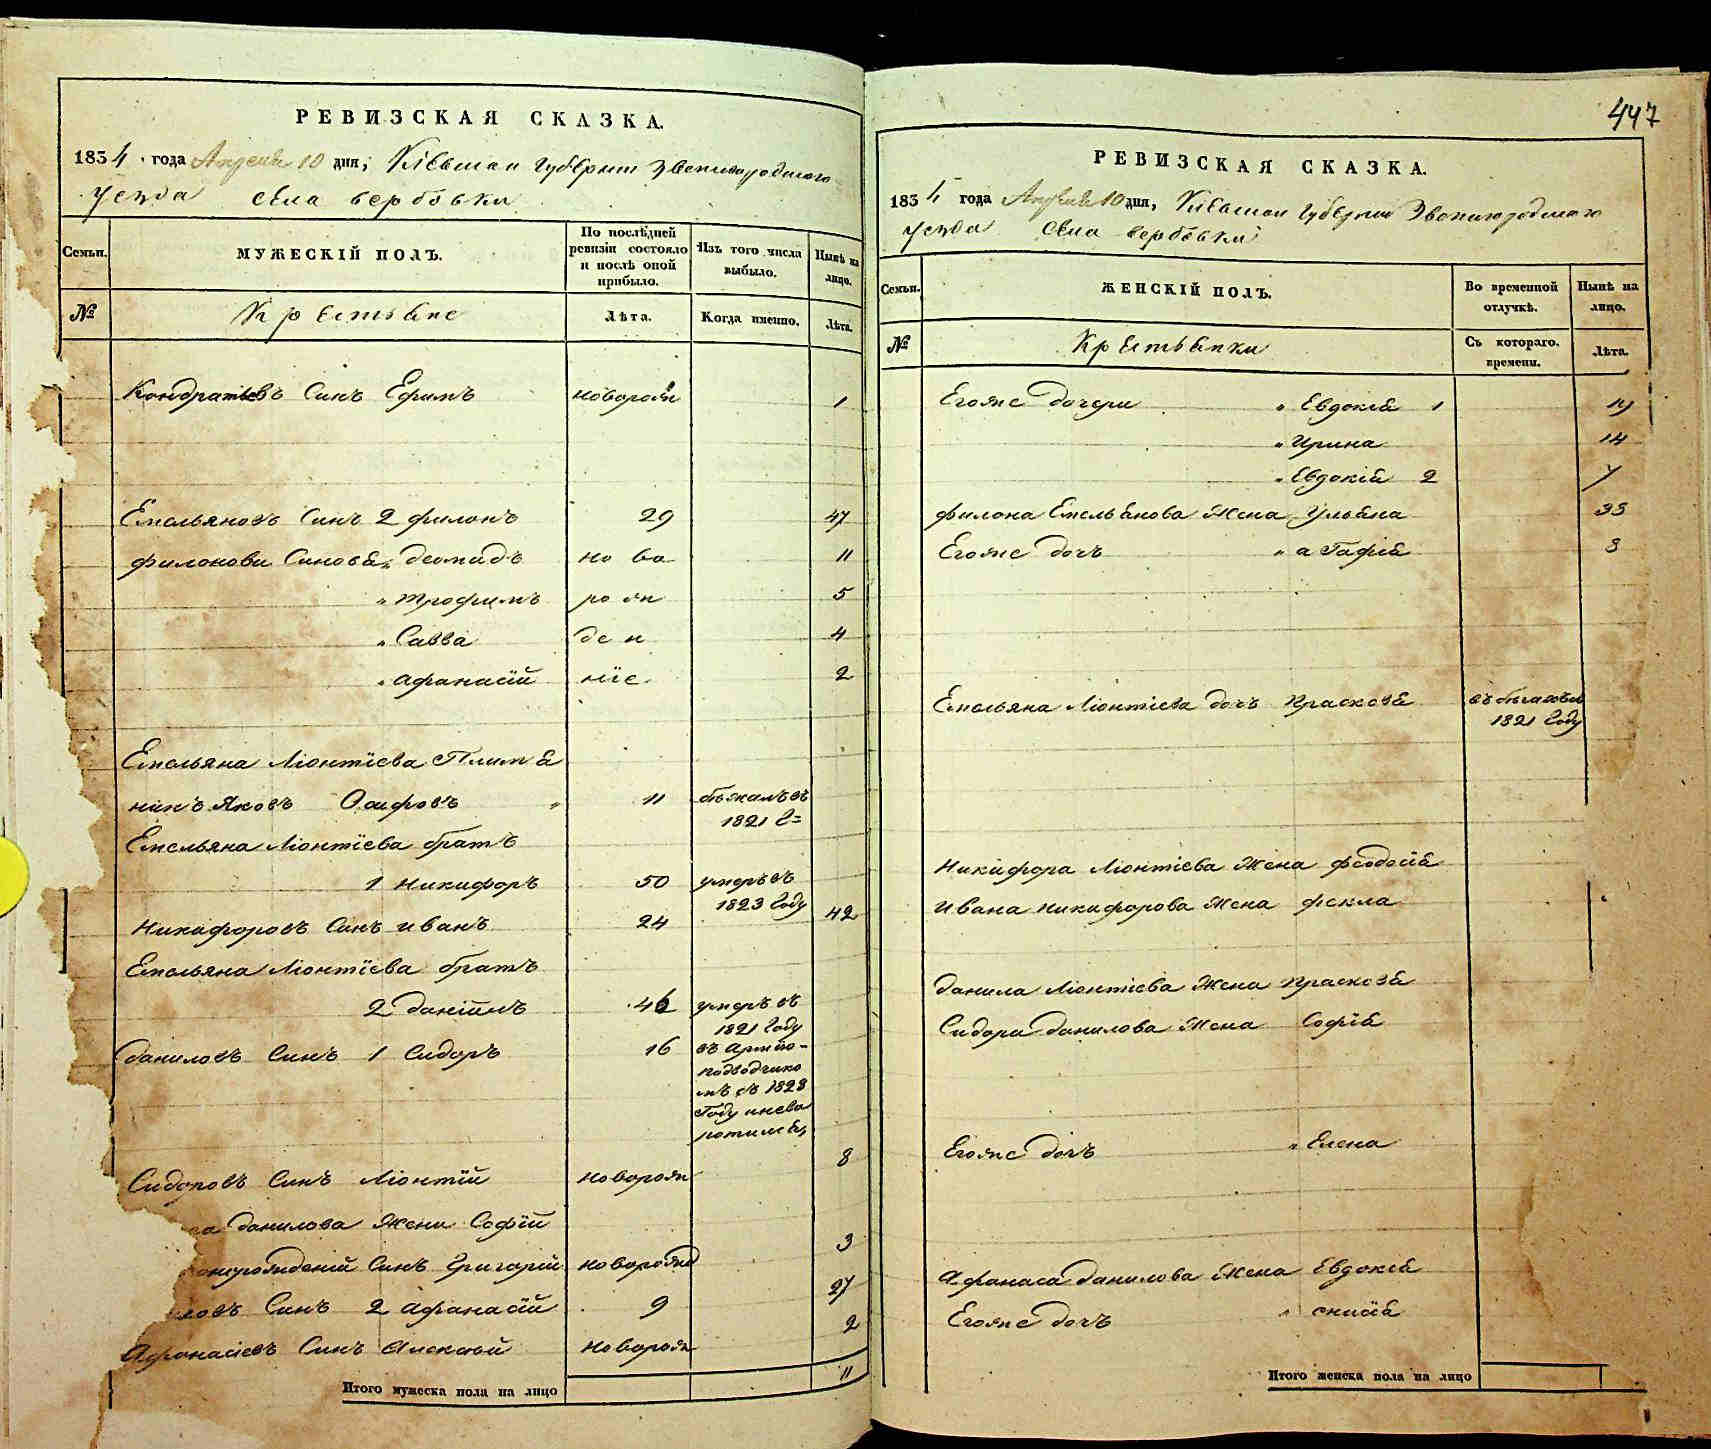 РЕВИЗСКАЯ СКАЗКА.
1834 года Апреля 10 дня, Кіевской Губерніи Звенигородского
уезда села вербовки
Семьи.
МУЖЕСКІЙ ПОЛЪ.
По послѣдней ревизіи состояло и послѣ оной прибыло.
Изъ того числа выбыло.
Нынѣ на лицо.
№
Крестьяне
Лѣта.
Когда именно.
Лѣта.
Кондратьевъ Синъ Ефимъ новорож 1
Емельяновъ Синъ 2 филонъ 29 47
филонови Синовя „ деомидъ но во 11
„ трофимъ ро ж 5
„ Савва де н 4
„ афанасій ніе 2
Емельяна Ліонтіева Племя
никъ Яковъ Осифовъ „ 11 бѣжалъ въ
1821 г=
Емельяна Ліонтіева братъ
1 Никифоръ 50 умеръ въ
1823 Году
Никифоровъ Синъ иванъ 24 42
Емельяна Ліонтіева братъ
2 даніилъ 46 умеръ въ
1821 Году
даниловъ Синъ 1 Сидоръ 16 въ
подводчико
мъ въ 1828
Году инево
ротился
Сидоровъ Синъ Ліонтій новорож 8
данилова Жени Софіи
Синъ Григорій новорожд 3
ловъ Синъ 2 афанасій 9 27
Афанасіевъ Синъ Алексѣй новорож 2
Итого мужеска пола на лицо 11
447
РЕВИЗСКАЯ СКАЗКА.
1834 года Апреля 10 дня, Кіевской Губерніи Звенигородского
уезда села вербовки
Семьи.
ЖЕНСКІЙ ПОЛЪ.
Во временной отлучкѣ.
Нынѣ на лицо.
№
Крестьянки
Съ котораго. времени.
Лѣта.
Егоже дочери „ Евдокія 1 19
„ Ирина 14
„ Евдокія 2 7
филона Емельянова Жена Ульяна 35
Егоже дочь „ а Гафія 8
Емельяна Ліонтіева дочь Прасковя въ бѣгахъ въ
1821 Году
Никифора Ліонтіева Жена феодосія
ивана никифорова Жена фекла
данила Ліонтіева Жена Прасковя
Сидора данилова Жена Софія
Егоже дочь „ Елена
афанаса данилова Жена Евдокія
Егоже дочь „
Итого женска пола на лицо